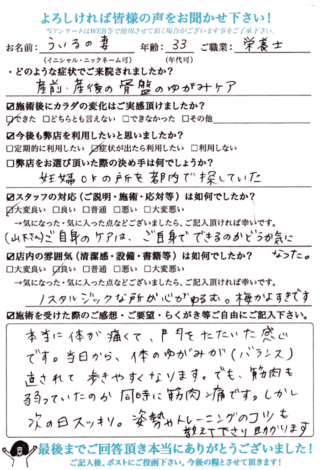 よろしければ皆様の声をお聞かせ下さい!
お名前: ういるの妻 年齢: 33 ご職業: 栄養士
(イニシャル・ニックネーム可) (年代可)
・どのような症状でご来院されましたか?
産前・産後の骨盤のゆがみケア
☑施術後にカラダの変化はご実感頂けましたか?
☑できた □どちらとも言えない □できなかった □その他
☑今後も弊店を利用したいと思いましたか?
□定期的に利用したい ☑症状が出たら利用したい □利用しない
□弊店をお選び頂いた際の決め手は何でしょうか?
妊婦OKの所を都内で探していた
☑スタッフの対応(ご説明・施術・応対等)は如何でしたか?
☑大変良い □良い □普通 □悪い □大変悪い
→気になった・気に入った点などございましたら、ご記入頂ければ幸いです。
(山下さん)ご自身のケアは、ご自身でできるのかどうか気に
なった。
☑店内の雰囲気(清潔感・設備・書類等)は如何でしたか?
□大変良い ☑良い □普通 □悪い □大変悪い
→気になった・気に入った点などございましたら、ご記入頂ければ幸いです。
ノスタルジックな所が心がゆるむ。梅がよすぎです
☑施術を受けた際のご感想・ご要望・らくがき等ご自由にご記入下さい。
本当に体が痛くて、門をたたいた感じ
です。当日から、体のゆがみが(バランス)
直されて歩きやすくなります。でも、筋肉も
弱っていたのか同時に筋肉痛です。しかし
次の日スッキリ。姿勢やトレーニングのコツも
教えて下さり助かります
最後までご回答頂き本当にありがとうございました!
ご記入後、ポストにご投函下さい。今後の糧とさせて頂きます!